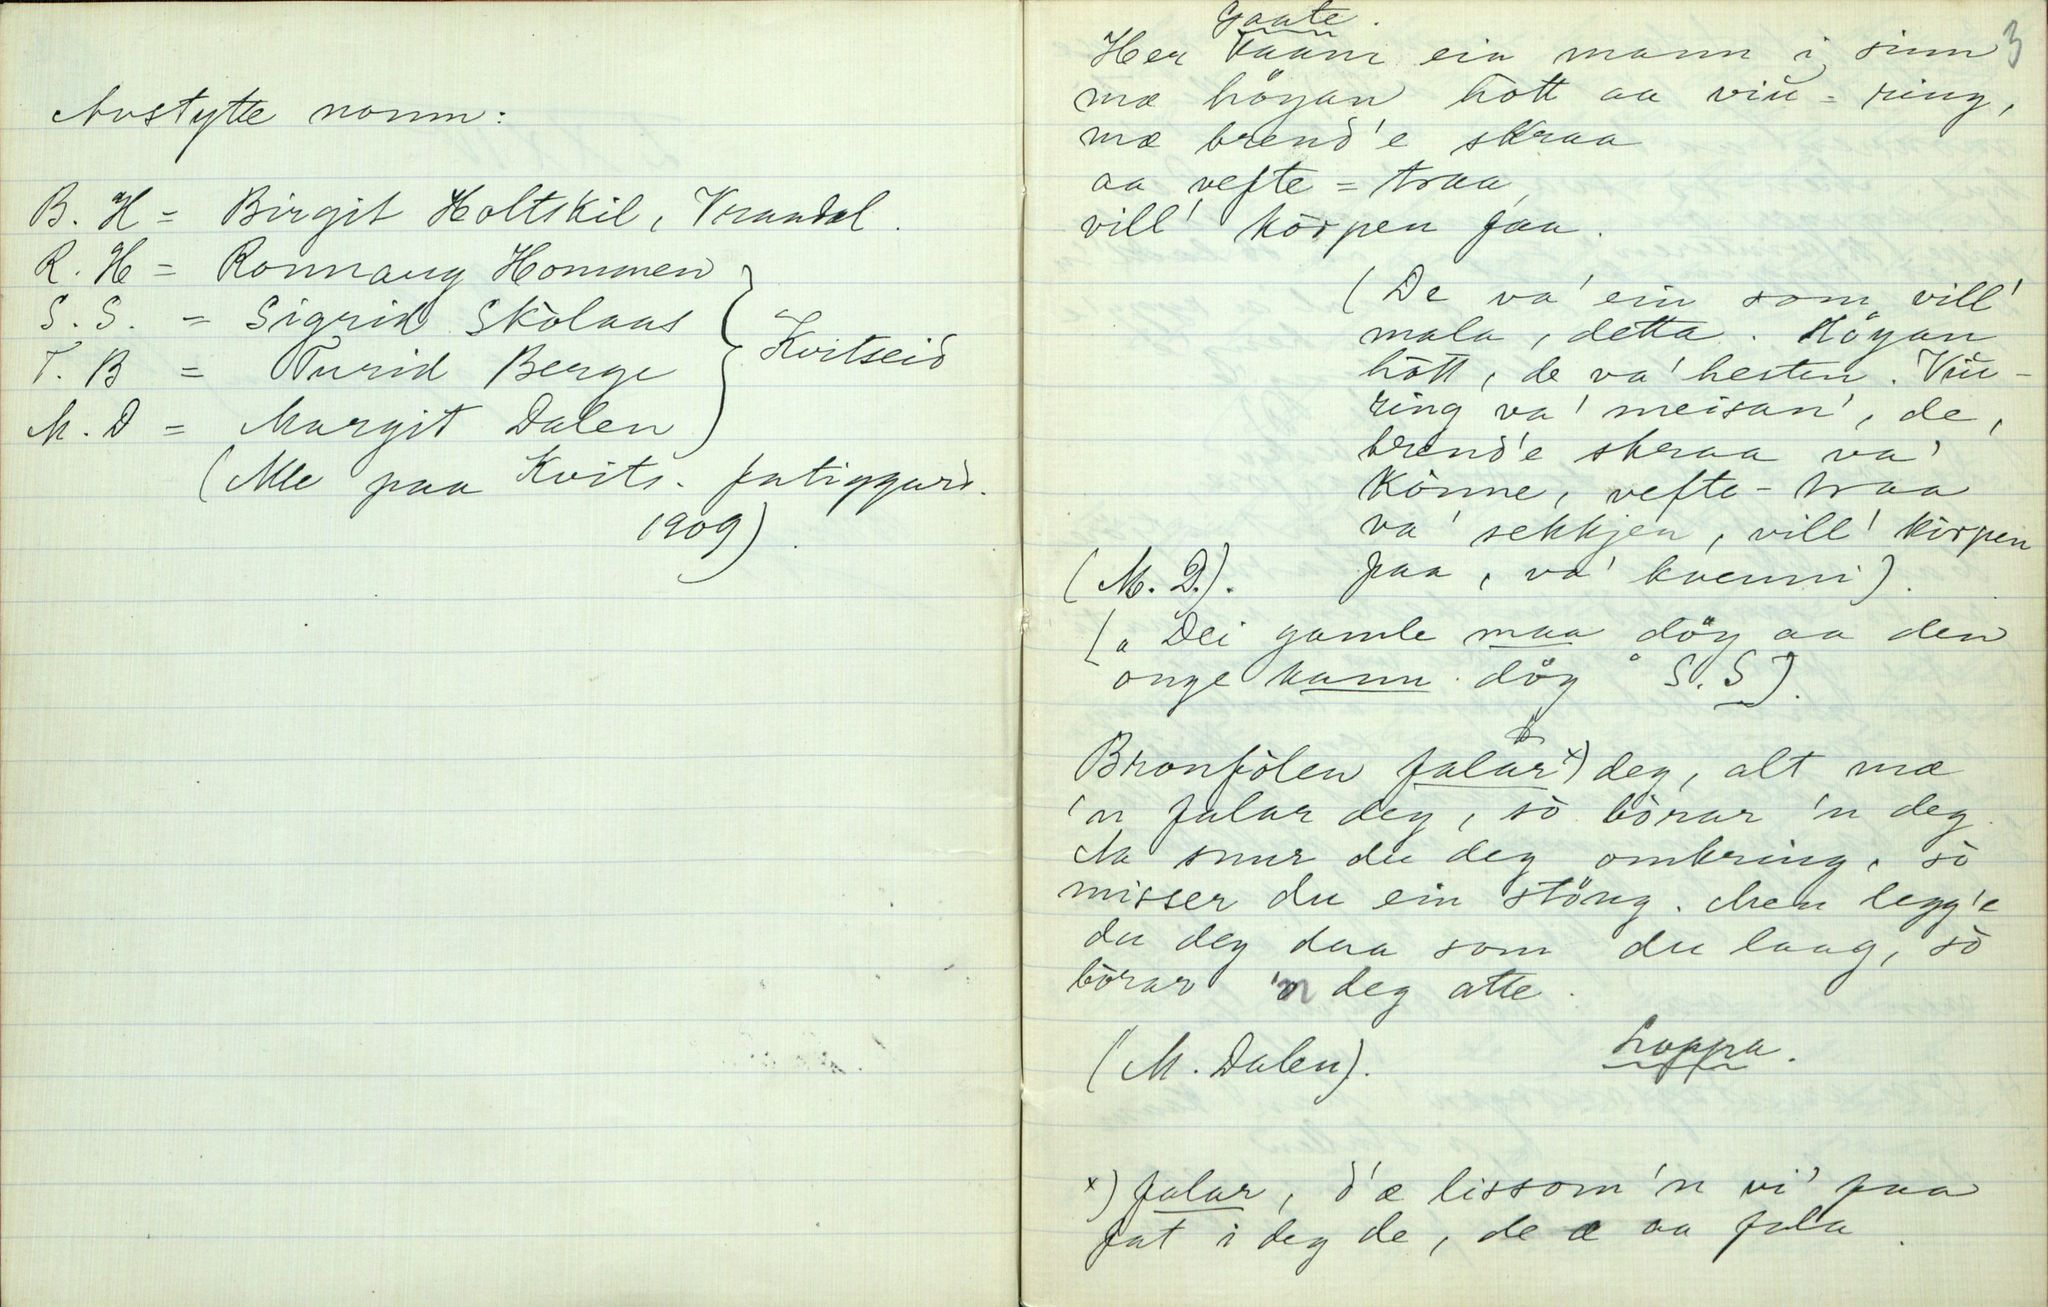 Avstytte namn:
B. H = Birgit Holtskil, Vraadal.
R. H = Ronnaug Hommen
S. S. = Sigrid Skòlaas
T. B = Turid Berge
M. D = Margit Dalen
Kvitseid
(Alle paa Kvits. fatiggard.
1909)
3
Gaate.
Her kaam ein mann i sinn
mæ höyan hòtt aa viu = ring,
mæ brend'e skraa
aa vefte = traa
vill' kòrpen faa.
(De va' ein som vill'
mala, detta. Höyan
hòtt, de va' hesten. Viu-
ring va' meisan', de,
brend'e skraa va'
Kònne, vefte-traa
va' sekkjen, vill' kòrpen
faa, va' kvenni).
(M. D.).
("Dei gamle maa döy aa den
onge kann döy" S. S).
Bronfòlen falar x) deg, alt mæ
'n falar deg, sò bòrar 'n deg
Aa snur du deg ombring, sò
misser du ein stöng. Men legg'e
du deg daa som du laag, sò
bòrar 'n deg atte.
(M. Dalen).
Loppa.
x) falar, d'æ lissom 'n vi' faa
fat i deg de, de æ aa fala.